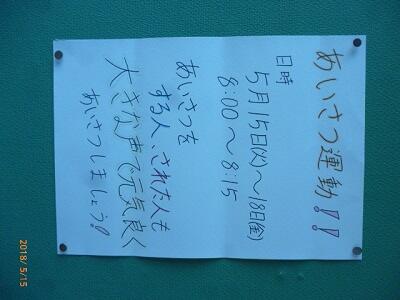 あいさつ運動!!
日時
5月15日(火)〜18日(金)
8:00〜8:15
あいさつを
する人、された人も
大きな声で元気良く
あいさつしましょう!
2018/5/15